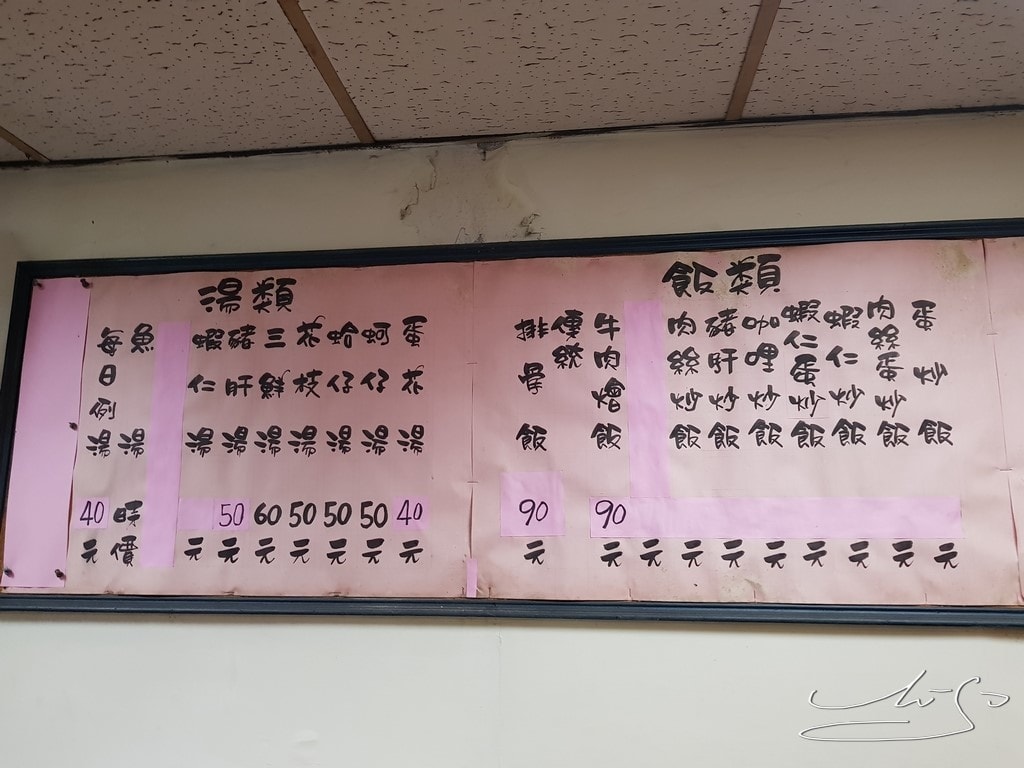 飯類
蛋炒飯元
肉絲蛋炒飯元
蝦仁炒飯元
蝦仁蛋炒飯元
咖哩炒飯元
豬肝炒飯元
肉絲炒飯元
元
牛肉燴飯90元
傳統排骨飯90元
湯類
蛋花湯40元
蚵仔湯50元
蛤仔湯50元
花枝湯50元
三鮮湯60元
豬肝湯50元
蝦仁湯元
魚湯時價
每日例湯40元